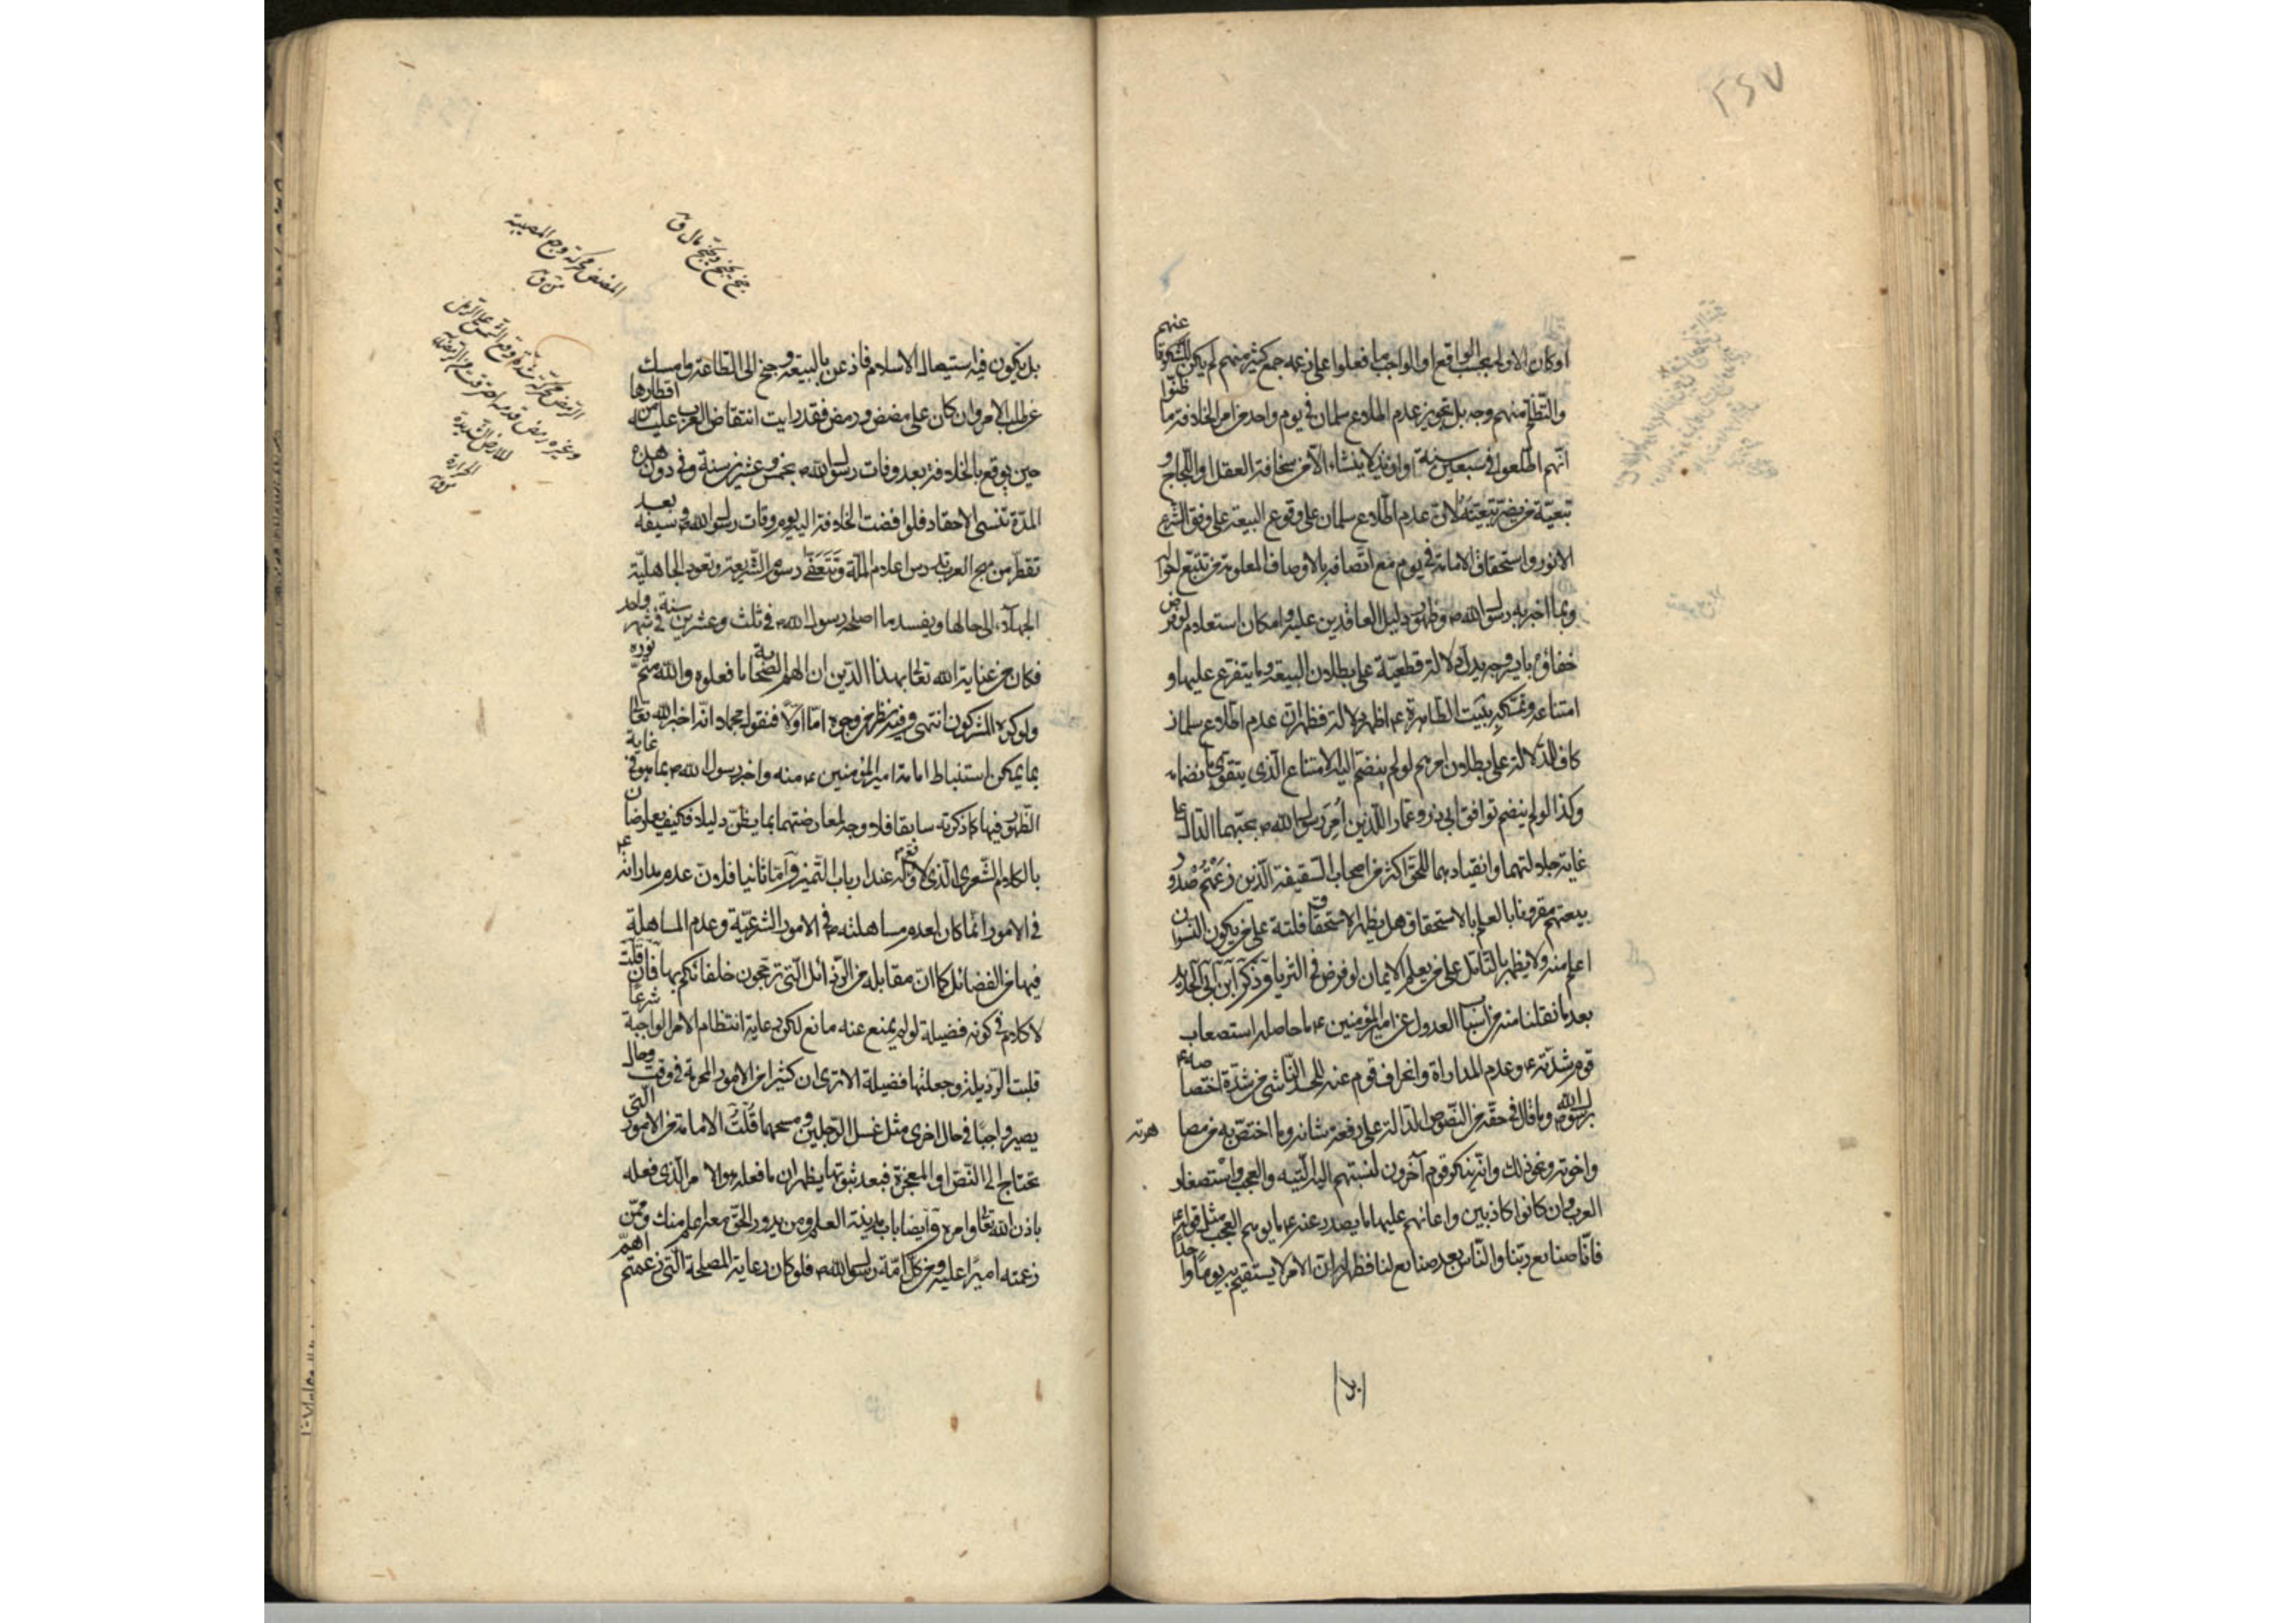 ٢٤٧
اوكان الاولى بحسب الواقع او الواجب ما فعلوا على زعمه جمع كثير منهم لم يكن للشكوة عنهم
والتظلم منهم وجه بل تجويز عدم اطلاع سلمان في يوم واحد من امر الخلافة ما ظنوا
انهم اطلعوا في سبعين سنة او ازيد لا ينشاء الا من سخافة العقل او اللجاج و
تبعية من يضر تبعيته لان عدم اطلاع سلمان على وقوع البيعة على وفق الشرع
الانور واستحقاق الامامة في يوم مع اتصافه بالاوصاف المعلومة من تتبع احواله
وبما اخبر به رسول الله ص وظهور دليل العاقدين عليه وامكان استعلام لو فرض
خفاؤه باي وجه يدل دلالة قطعية على بطلان البيعة وما يتفرع عليها و
امتناعه وتمسكه ببيت الطاهرة ع اظهر دلالة فظهر ان عدم اطلاع سلمان
كاف للدلالة على بطلان امرهم لو لم ينضم اليه الامتناع الذي يتقوى بانضمامه
وكذا لو لم ينضم توافق ابي ذر وعمار اللذين امر رسول الله ص بحبهما الدال على
غاية جلالتهما وانقيادهما للحق اكثر من اصحاب السقيفة الذين زعمتم صدور
بيعتهم مقرونا بالعلم بالاستحقاق هل يظهر الاستحقاق فلتة على من يكون النسوان
اعلم منه ولا يظهر بالتأمل على من يعلم الايمان لو فرض في الثريا وذكر ابن ابي الحديد
بعد ما نقلنا منه من اسباب العدول عن امير المؤمنين ع ما حاصله استصعاب
قوم شدته ع وعدم المداراة وانحراف قوم عنه للحسد الناشي من شدة اختصاصه ع
برسول الله ص وما قال في حقه من النصوص الدالة على رفعة شانه وما اختص به من مصاهرته
واخوته ونحو ذلك وانه ينكره قوم آخرون لنسبتهم اليه التيه والعجب واستصغار
العرب وان كانوا كاذبين واعانهم عليها ما يصدر عنه ع ما يوهم العجب مثل قوله ع
فانا صنايع ربنا والناس بعد صنايع لنا فظهر ان الامر لا يستقيم به يوما واحدا
بل يكون فيه استيصال الاسلام فاذعن بالبيعة وجنح الى الطاعة وامسك
عن طلب الامر وان كان على مضض ورمض فقد رايت انتقاض العرب عليه من اقطارها
حين بويع بالخلافة بعد وفات رسول الله ص بخمس وعشرين سنة وفي دون هذه
المدة تنسى الاحقاد فلو افضت الخلافة اليه يوم وفات رسول الله ص وسيفه بعد
تقطر من مهج العرب لدرس اعلام الملة وتتعفى رسوم الشريعة وتعود الجاهلية
الجهلاء الى حالها ويفسد ما اصلحه رسول الله ص في ثلث وعشرين سنة في شهر واحد
فكان من عناية الله تعالى بهذا الدين ان الهم الصحابة ما فعلوه والله متم نوره
ولو كره المشركون انتهى وفيه نظر من وجوه اما اولا فنقول مجملا انه اخبر الله تعالى
بما يمكن استنباط امامة امير المؤمنين ع منه واخبر رسول الله ص بما هو في غاية
الظهور فيها كما ذكرته سابقا فلا وجه لمعارضتهما بما يظن دليلا فكيف يعارضان
بالكلام الشعري الذي لا وقع له عند ارباب التميز واما ثانيا فلان عدم مداراته ع
في الامور انما كان لعدم مساهلته ص في الامور الشرعية وعدم المساهلة
فيها من الفضائل كما ان مقابله من الرذائل التي ترجحون خلفائكم بها فان قلت
لا كلام في كونه فضيلة لو لم يمنع عنه مانع لكون رعاية انتظام الامر الواجبة شرعا
قلبت الرذيلة وجعلتها فضيلة الا ترى ان كثيرا من الامور المحرمة في وقت وحال
يصير واجبا في حال اخرى مثل غسل الرجلين ومسحهما قلت الامامة من الامور التي
تحتاج الى النص او المعجزة فبعد ثبوتها يظهر ان ما فعله هو الامر الذي فعله
باذن الله تعالى وامره وايضا باب مدينة العلم ومن يدور الحق معه اعلم منك وممن
زعمته اميرا عليه ومن كل امة رسول الله ص فلو كان رعاية المصلحة التي زعمتم اهم
المضض محركة وجع المصيبة
الرمض محركة شدة وقع الشمس على الرمل
وغيره رمض قدمه احترقت من الرمضاء
للارض الشديدة
الحرارة